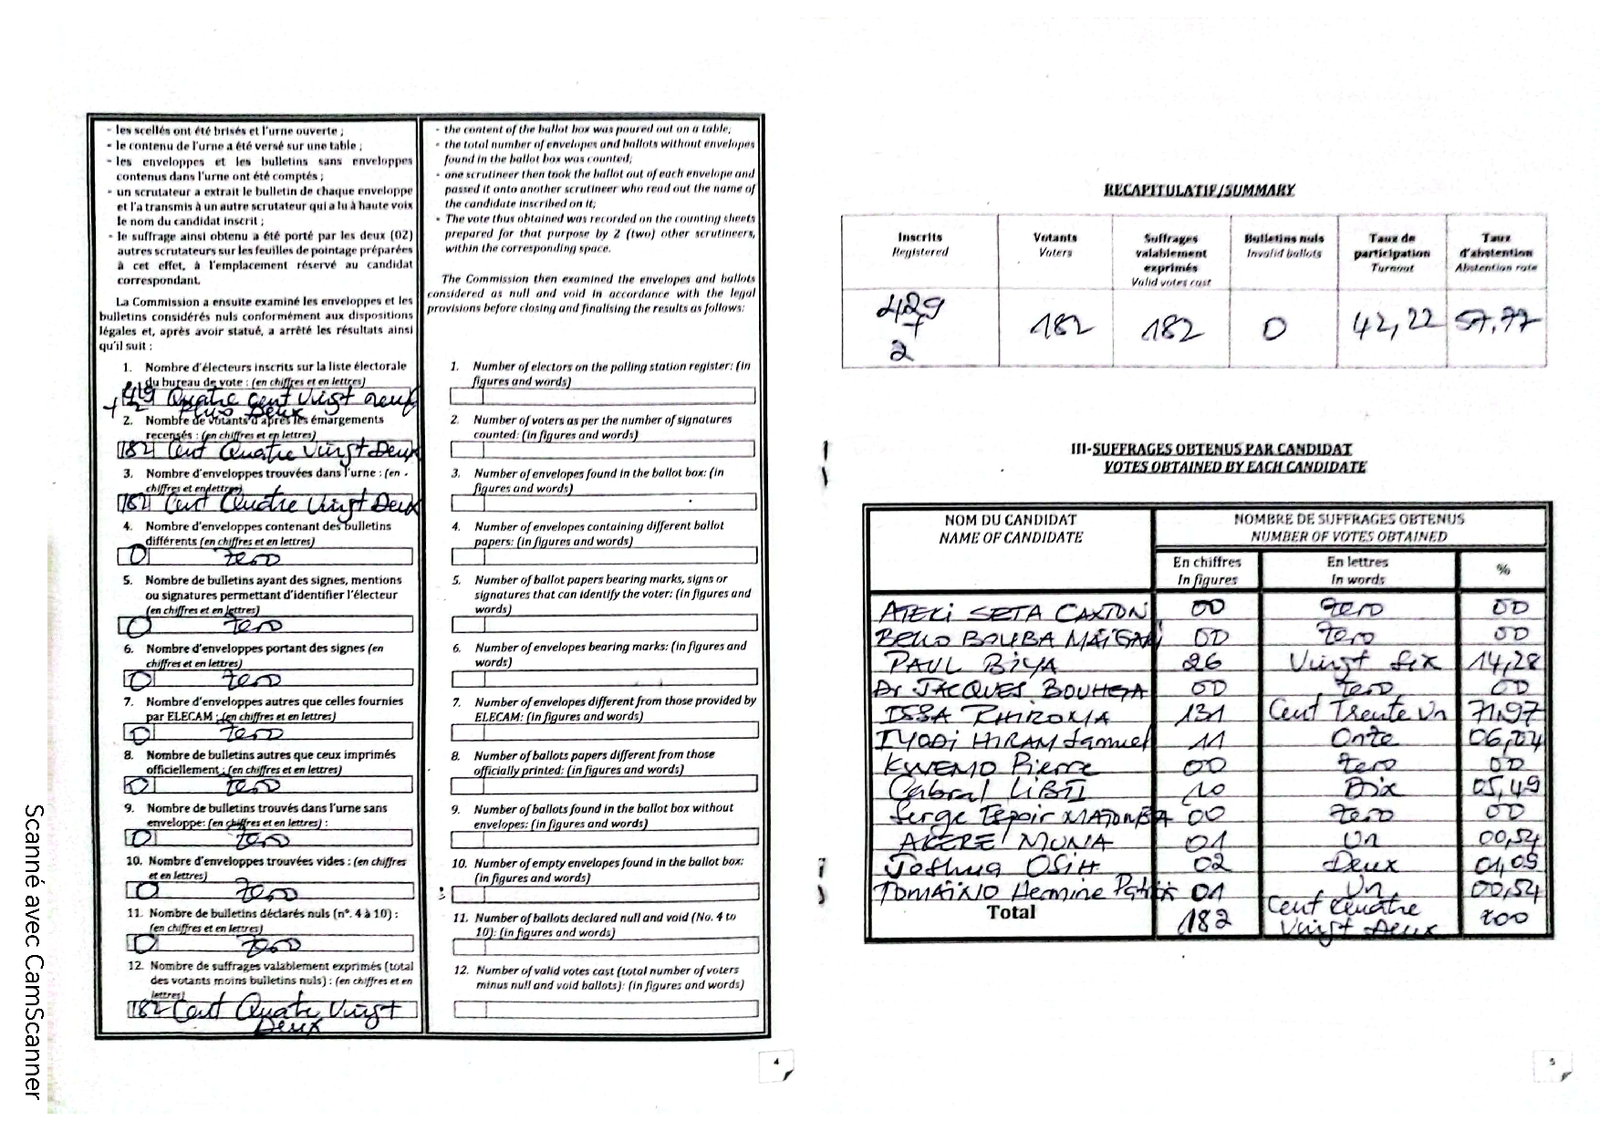 - les scellés ont été brisés et l'urne ouverte ;
- le contenu de l'urne a été versé sur une table ;
- les enveloppes et les bulletins sans enveloppes
contenus dans l'urne ont été comptés ;
- un scrutateur a extrait le bulletin de chaque enveloppe
et l'a transmis à un autre scrutateur qui a lu à haute voix
le nom du candidat inscrit ;
- le suffrage ainsi obtenu a été porté par les deux (02)
autres scrutateurs sur les feuilles de pointage préparées
à cet effet, à l'emplacement réservé au candidat
correspondant.
La Commission a ensuite examiné les enveloppes et les
bulletins considérés nuls conformément aux dispositions
légales et, après avoir statué, a arrêté les résultats ainsi
qu'il suit :
1. Nombre d'électeurs inscrits sur la liste électorale
du bureau de vote : (en chiffres et en lettres)
429 Quatre cent Vingt neuf
+ 2 Plus Deux
2. Nombre de votants d'après les émargements
recensés : (en chiffres et en lettres)
182 Cent Quatre Vingt Deux
3. Nombre d'enveloppes trouvées dans l'urne : (en
chiffres et en lettres)
182 Cent Quatre Vingt Deux
4. Nombre d'enveloppes contenant des bulletins
différents (en chiffres et en lettres)
0 Zero
5. Nombre de bulletins ayant des signes, mentions
ou signatures permettant d'identifier l'électeur
(en chiffres et en lettres)
0 Zero
6. Nombre d'enveloppes portant des signes (en
chiffres et en lettres)
0 Zero
7. Nombre d'enveloppes autres que celles fournies
par ELECAM : (en chiffres et en lettres)
0 Zero
8. Nombre de bulletins autres que ceux imprimés
officiellement : (en chiffres et en lettres)
0 Zero
9. Nombre de bulletins trouvés dans l'urne sans
enveloppe: (en chiffres et en lettres) :
0 Zero
10. Nombre d'enveloppes trouvées vides : (en chiffres
et en lettres)
0 Zero
11. Nombre de bulletins déclarés nuls (n°. 4 à 10) :
(en chiffres et en lettres)
0 Zero
12. Nombre de suffrages valablement exprimés (total
des votants moins bulletins nuls) : (en chiffres et en
lettres)
182 Cent Quatre Vingt
Deux
- the content of the ballot box was poured out on a table;
- the total number of envelopes and ballots without envelopes
found in the ballot box was counted;
- one scrutineer then took the ballot out of each envelope and
passed it onto another scrutineer who read out the name of
the candidate inscribed on it;
- The vote thus obtained was recorded on the counting sheets
prepared for that purpose by 2 (two) other scrutineers,
within the corresponding space.
The Commission then examined the envelopes and ballots
considered as null and void in accordance with the legal
provisions before closing and finalising the results as follows:
1. Number of electors on the polling station register: (in
figures and words)
2. Number of voters as per the number of signatures
counted: (in figures and words)
3. Number of envelopes found in the ballot box: (in
figures and words)
4. Number of envelopes containing different ballot
papers: (in figures and words)
5. Number of ballot papers bearing marks, signs or
signatures that can identify the voter: (in figures and
words)
6. Number of envelopes bearing marks: (in figures and
words)
7. Number of envelopes different from those provided by
ELECAM: (in figures and words)
8. Number of ballots papers different from those
officially printed: (in figures and words)
9. Number of ballots found in the ballot box without
envelopes: (in figures and words)
10. Number of empty envelopes found in the ballot box:
(in figures and words)
11. Number of ballots declared null and void (No. 4 to
10): (in figures and words)
12. Number of valid votes cast (total number of voters
minus null and void ballots): (in figures and words)
4
RECAPITULATIF/SUMMARY
Inscrits Votants Suffrages Bulletins nuls Taux de Taux
Registered Voters valablement Invalid ballots participation d'abstention
exprimés Turnout Abstention rate
Valid votes cast
429 + 2 182 182 0 42,22 57,77
III-SUFFRAGES OBTENUS PAR CANDIDAT
VOTES OBTAINED BY EACH CANDIDATE
NOM DU CANDIDAT NOMBRE DE SUFFRAGES OBTENUS
NAME OF CANDIDATE NUMBER OF VOTES OBTAINED
En chiffres En lettres %
In figures In words
ATEKI SETA CAXTON 00 Zero 00
BELLO BOUBA MAÏGARI 00 Zero 00
PAUL BIYA 26 Vingt Six 14,28
Dr JACQUES BOUHGA 00 Zero 00
ISSA TCHIROMA 131 Cent Trente Un 71,97
IYODI HIRAM Samuel 11 Onze 06,04
KWEMO Pierre 00 Zero 00
Cabral LIBII 10 Dix 05,49
Serge Espoir MATOMBA 00 Zero 00
AKERE MUNA 01 Un 00,54
Joshua OSIH 02 Deux 01,09
TOMAÏNO Hermine Patricia 01 Un 00,54
Total 182 Cent Quatre Vingt Deux 100
5
Scanné avec CamScanner